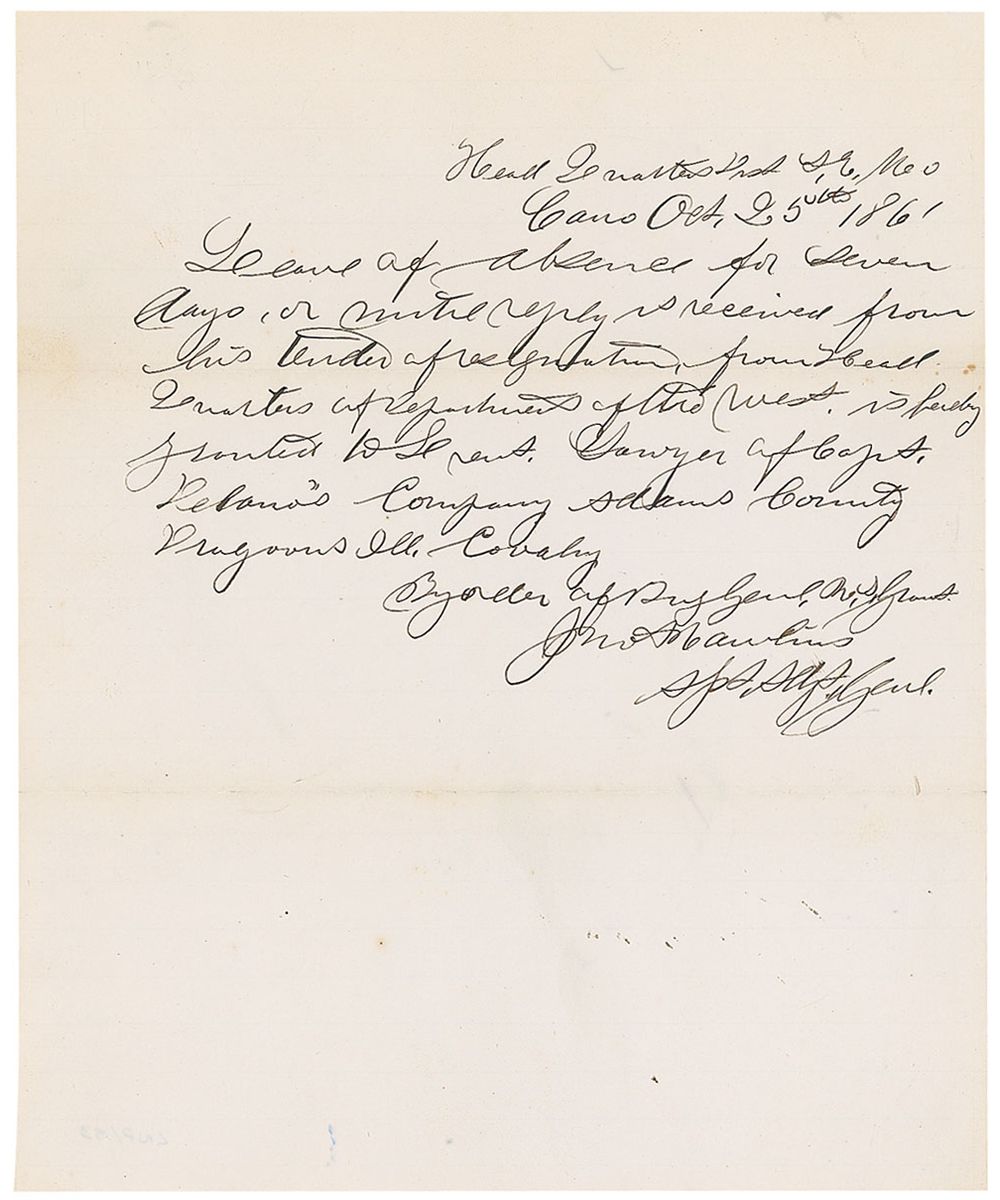 Head Quarters Dist S. E. Mo
Cairo Oct. 25th 1861
Leave of absence for seven
days, or until reply is received from
his tender of resignation, from Head
Quarters of Department of the West. is hereby
granted to Lieut. Sawyer of Capt.
Delano's Company Adams County
Dragoons Ill. Cavalry
By order of Brig Genl. U.S. Grant
Jno A Rawlins
Asst. Adjt. Genl.